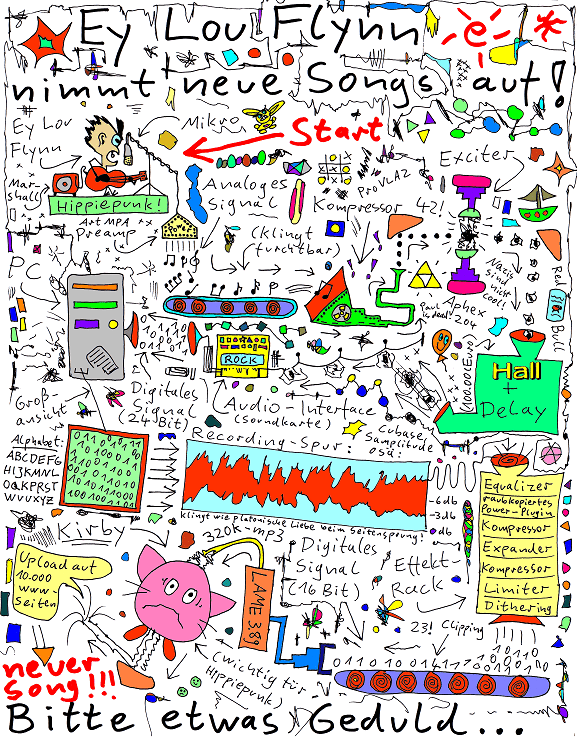 Ey Lou Flynn
nimmt neue Songs auf!
Ey Lou
Flynn
Mikro
Start
Mar-
shall
Hippiepunk!
Art MPA
Preamp
Analoges
Signal
(klingt
furchtbar)
ProVLAZ
Kompressor
42!
Exciter
Nazis
sind
nicht
cool!
Red
Bull
PC
Aphex
204
ROCK
Hall
+
Delay
(100.000 Euro)
Groß-
ansicht
Digitales
Signal
(24 Bit)
Audio-Interface
(Soundkarte)
Cubase,
Samplitude
osä:
Alphabet:
ABCDEFG
HIJKMNL
OQKPRST
WVUXYZ
Recording-Spur:
klingt wie platonische Liebe beim Seitensprung!
-6db
-3db
0db
Equalizer
raubkopiertes
Power-Plugin
Kompressor
Expander
Kompressor
Limiter
Dithering
Kirby
320K-mp3
Upload auf
10.000
www-
Seiten
LAME 3.89
Digitales
Signal
(16 Bit)
Effekt-
Rack
23!
Clipping
(wichtig für
Hippiepunk)
neuer
Song!!!
Bitte etwas Geduld...